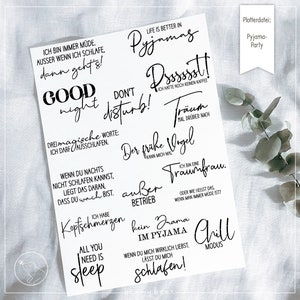 ICH BIN IMMER MÜDE.
AUSSER WENN ICH SCHLAFE,
dann geht's!
LIFE IS BETTER IN
Pyjamas
Plotterdatei:
Pyjama-
Party
GOOD
night
DON'T
disturb!
Dssssst!
ICH HATTE NOCH KEINEN KAFFEE
Träum
MAL DRÜBER NACH
DREI magische WORTE:
ICH DARF AUSSCHLAFEN.
Der frühe Vogel
KANN MICH MAL
WENN DU NACHTS
NICHT SCHLAFEN KANNST,
LIEGT DAS DARAN,
DASS DU wach BIST.
außer
BETRIEB
ICH BIN EINE
Traumfrau.
ODER WIE HEISST DAS,
WENN MAN IMMER MÜDE IST?
ICH HABE
Kopfschmerzen
kein Drama
IM PYJAMA
Chill
MODUS
ALL YOU
NEED IS
sleep
WENN DU MICH WIRKLICH LIEBST,
LÄSST DU MICH
schlafen!